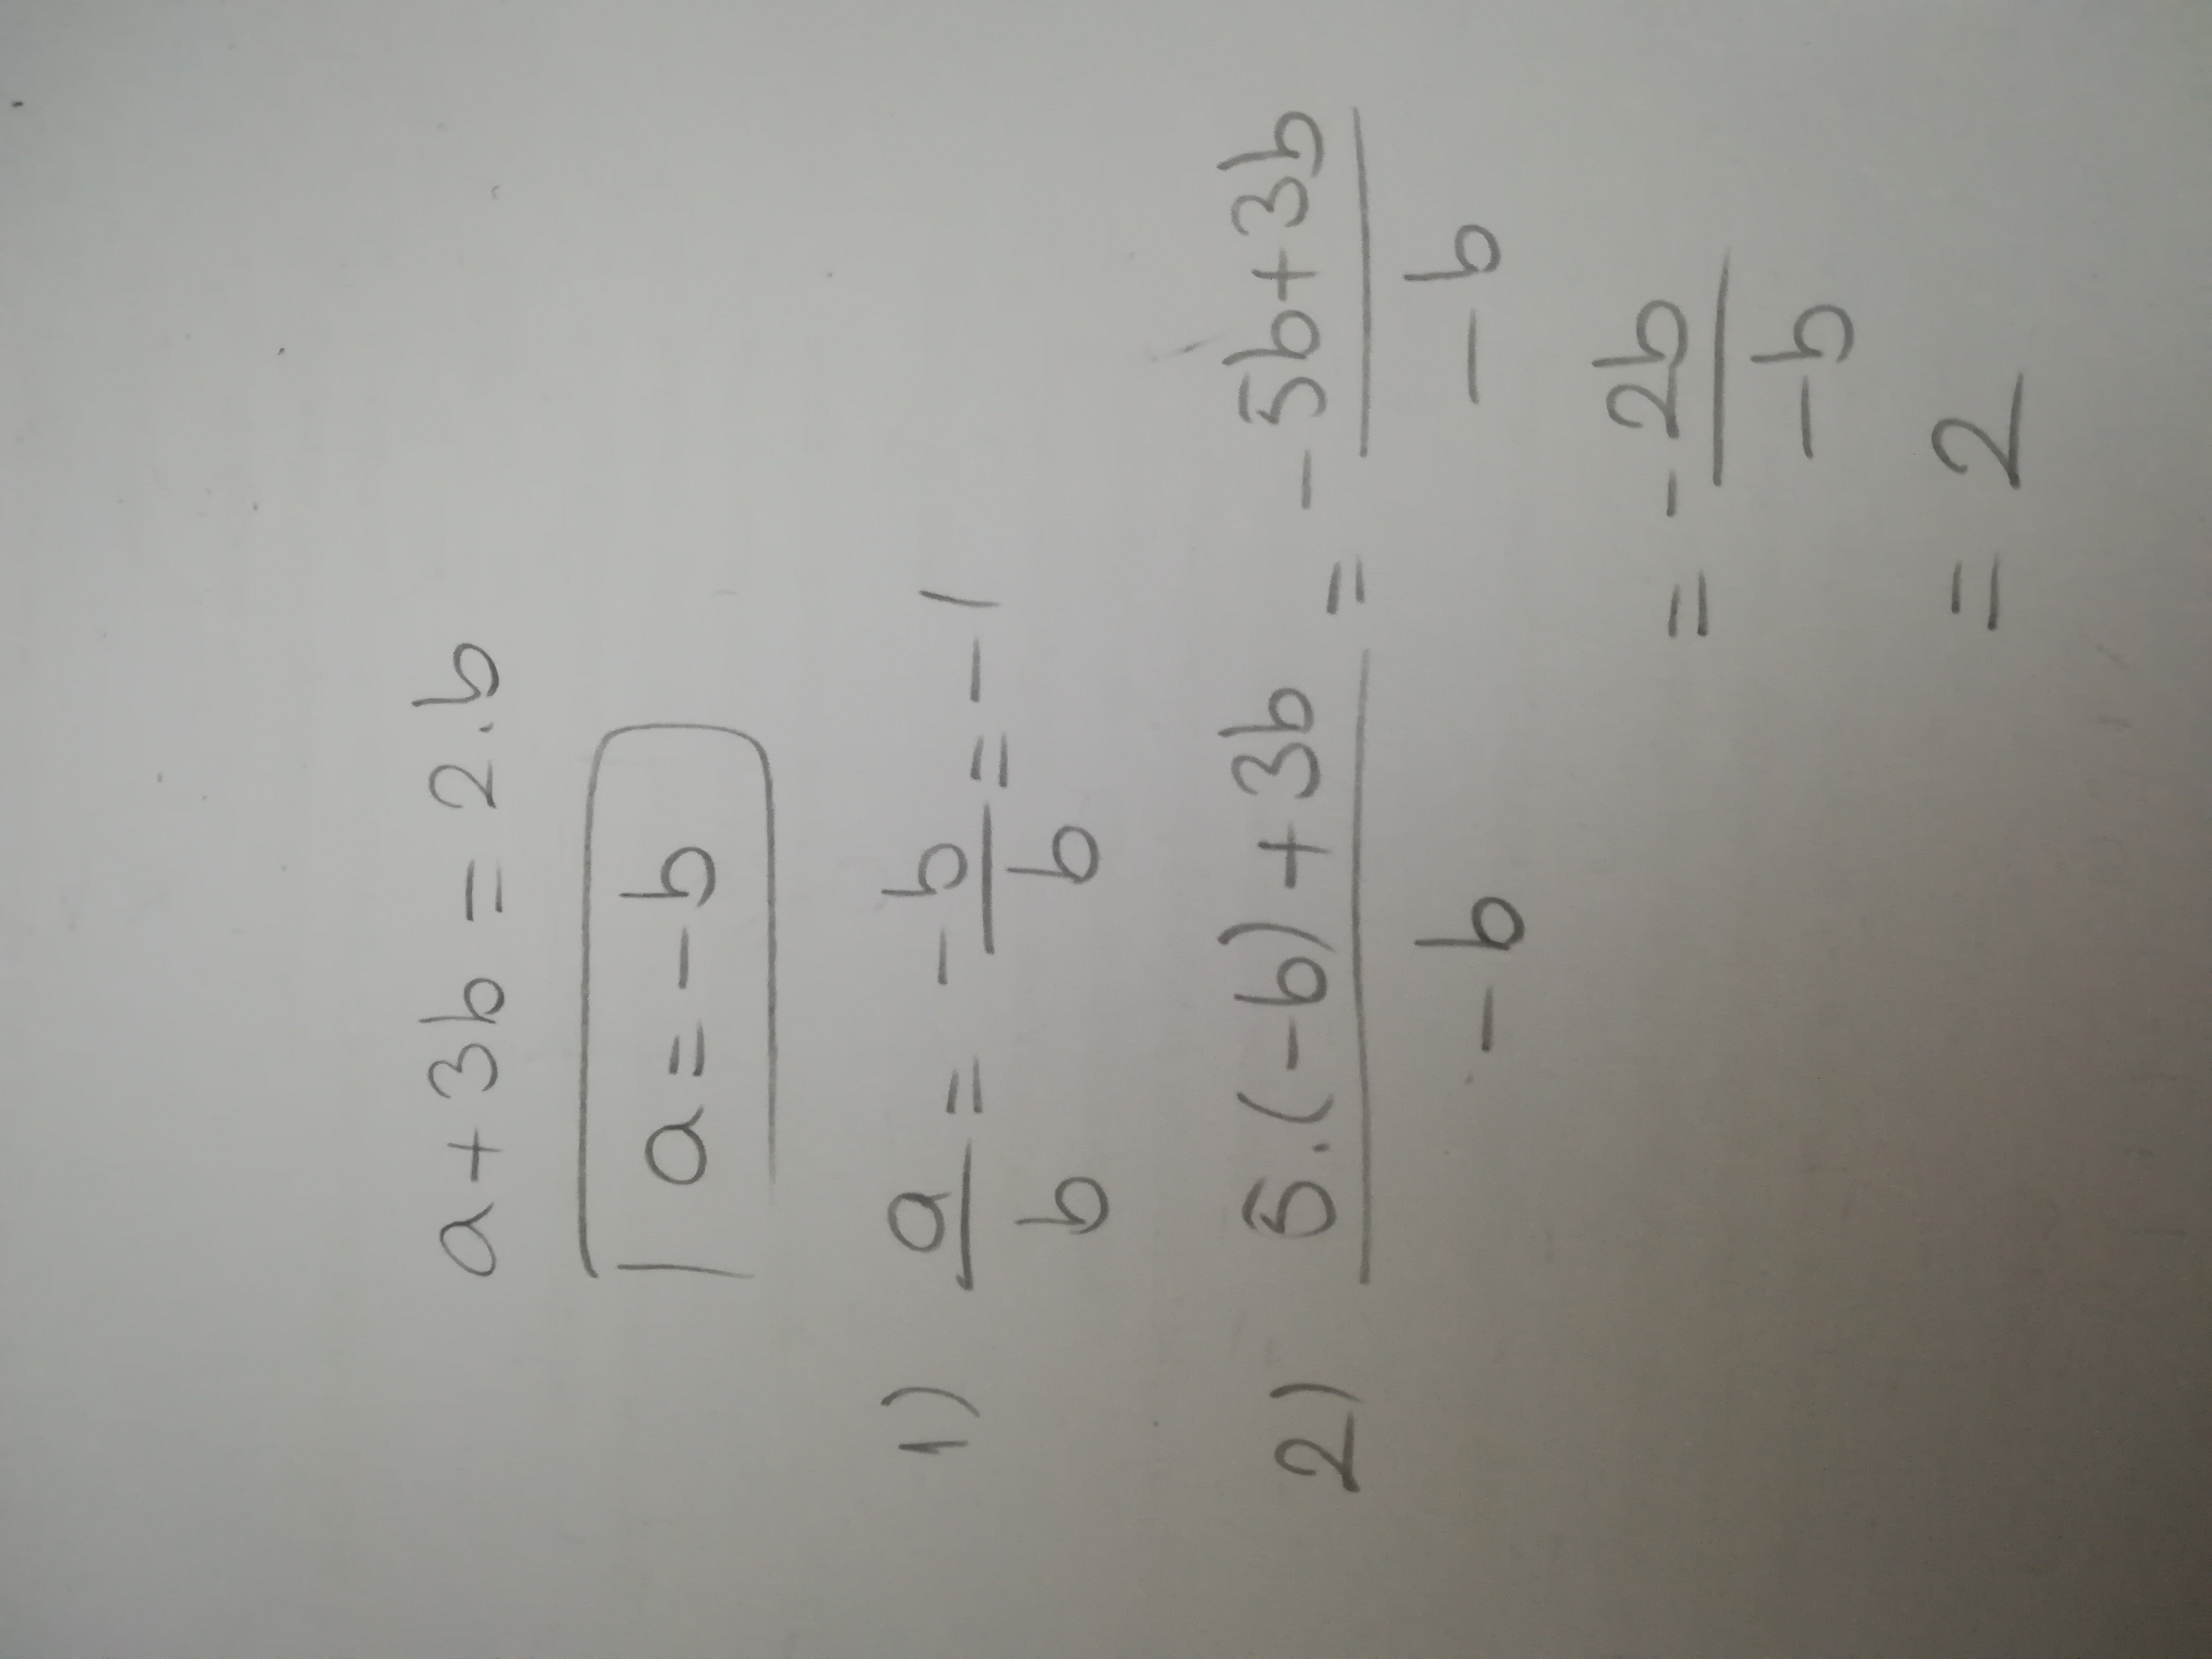 a + 3b = 2.b
a = - b
1) a/b = -b/b = - 1
2) 5.(-b) + 3b / -b = -5b+3b / -b
= -2b / -b
= 2